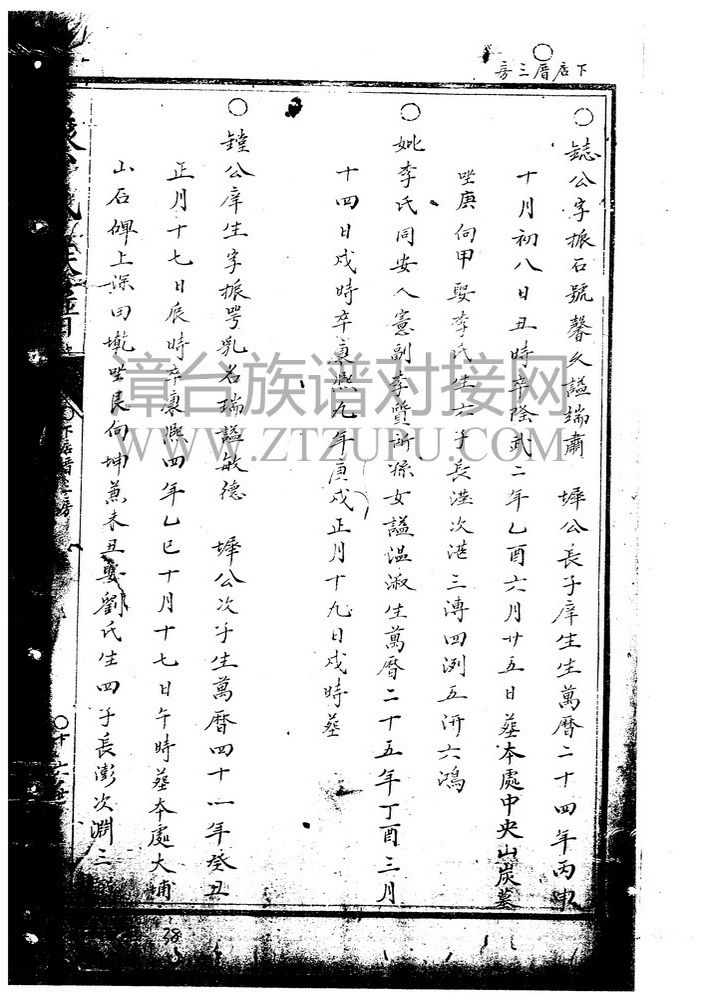 下店厝三房
誌公字振石號馨久諡端肅 墀公長子庠生生萬曆二十四年丙申
十月初八日丑時卒隆武二年乙酉六月廿五日葬本處中央山炭墓
坐庚向甲娶李氏生六子長 次港三溥四洌五汧六鴻
妣李氏同安人憲副李質所孫女諡溫淑生萬曆二十五年丁酉三月
十四日戌時卒康熙九年庚戌正月十九日戌時葬
鏜公庠生字振咢乳名瑞諡敏德 墀公次子生萬曆四十一年癸丑
正月十七日辰時卒康熙四年乙巳十月十七日午時葬本處大埔
山石碑上深田墘坐艮向坤兼未丑娶劉氏生四子長澎次淵三
下店厝三房
十六世
38
漳台族谱对接网
WWW.ZTZUPU.COM